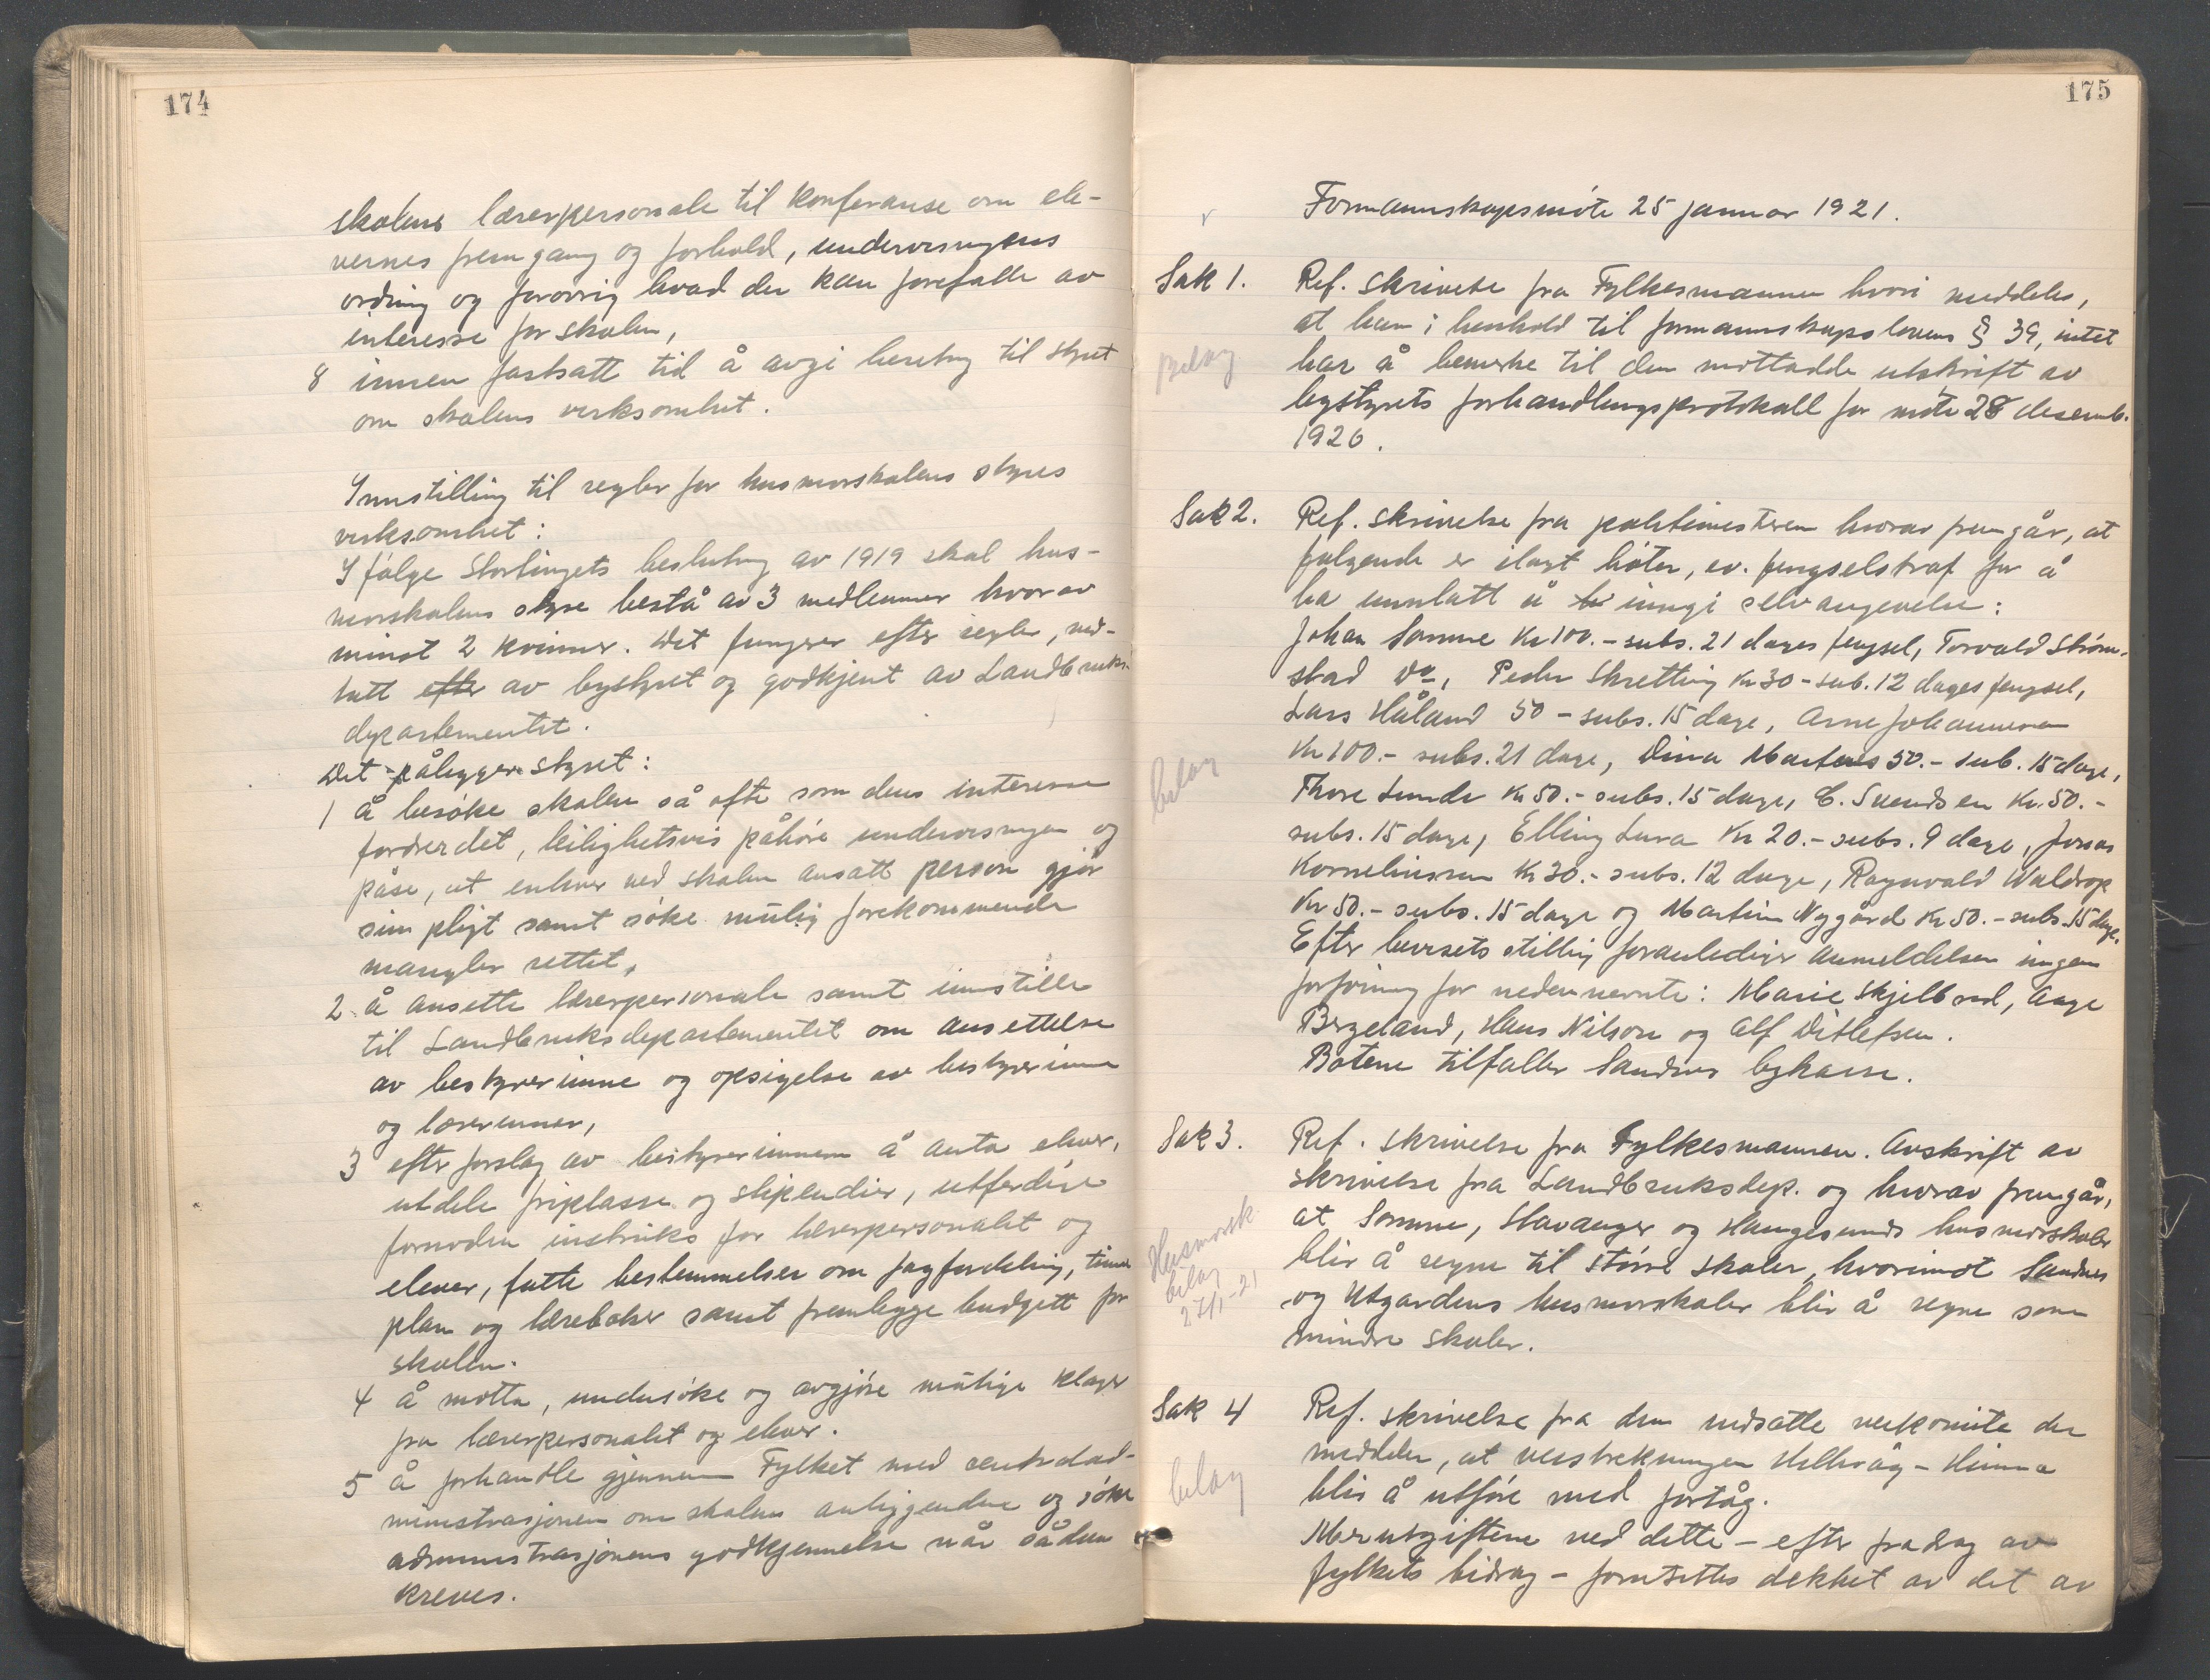 174
skolens lærerpersonale til konferanse om ele-
vernes fremgang og forhold, undervisningens
ordning og forøvrig hvad der kan forefalle av
interesse for skolen,
8 innen fastsatt tid å avgi beretng til styret
om skolens virksomhet.
Innstilling til regler for husmorskolens styres
virksomhet:
Ifølge Stortingets beslutng av 1919 skal hus-
morskolens styre bestå av 3 medlemmer hvorav
minst 2 kvinner. Det fungerer efter regler, ved-
tatt efter av bystyret og godkjent av Landbruks-
departementet.
Det påligger styret:
1 å besøke skolen så ofte som dens interesse
fordrer det, leilighetsvis påhøre undervisningen og
påse, at enhver ved skolen ansatt person gjør
sin pligt samt søke mulig forekommende
mangler rettet,
2 å ansette lærerpersonale samt innstille
til Landbruksdepartementet om ansettelse
av bestyrerinne og opsigelse av bestyrerinne
og lærerinner,
3 efter forslag av bestyrerinnen å anta elever,
utdele friplasse og stipendier, utferdige
fornøden instruks for lærerpersonalet og
elever, fatte bestemmelser om fagfordeling, time
plan og lærebøker samt fremlegge budgett for
skolen.
4 å motta, undersøke og avgjøre mulige klager
fra lærerpersonalet og elever.
5 å forhandle gjennem Fylket med sentralad-
ministrasjonen om skolens anliggender og søke
administrasjonens godkjennelse når sådan
kreves.
175
Formannskapsmøte 25 januar 1921.
Sak 1. Ref. skrivelse fra Fylkesmannen hvori meddeles,
at han i henhold til formannskapslovens § 39, intet
Belag
har å bemerke til den mottadde utskrift av
bystyrets forhandlingsprotokoll for møte 28 desemb.
1920.
Sak 2. Ref. skrivelse fra politimesteren hvorav fremgår, at
følgende er ilagt bøter, ev. fengselstraf for å
ha unnlatt å inngi selvangivelse:
Johan Sømme Kr 100.- subs. 21 dages fengsel, Torvald Strøm-
stad do, Peder Skretting Kr 30 - sub. 12 dages fengsel,
Lars Håland 50 - subs. 15 dage, Arne Johannesen
belag
Kr 100.- subs. 21 dage, Dina Martens 50.- sub. 15 dage,
Thore Lunde Kr 50.- subs. 15 dage, C. Svendsen Kr. 50.-
subs. 15 dage, Elling Lura Kr 20.- subs. 9 dage, Jonas
Korneliussen Kr 30.- subs. 12 dage, Ragnvald Waldrop
Kr 50.- subs. 15 dage og Martin Nygård Kr 50.- subs. 15 dage.
Efter bevisets stilling foranlediger anmeldelsen ingen
forføining for nedennevnte: Marie Skjelbred, Aage
Bergeland, Hans Nilsen og Alf Ditlefsen.
Bøtene tilfaller Sandnes bykasse.
Sak 3. Ref. skrivelse fra Fylkesmannen. Avskrift av
skrivelse fra Landbruksdep. og hvorav fremgår,
Husmorsk.
belag
27/1-21
at Sømme, Stavanger og Haugesunds husmorskoler
blir å regne til større skoler, hvorimot Sandnes
og Utgardens husmorskoler blir å regne som
mindre skoler.
Sak 4 Ref. skrivelse fra den nedsatte veikomite der
meddeler, at veistrekningen Hillevåg - Hinna
belag
blir å utføre med fortåg.
Merutgiftene ved dette - efter fradrag av
fylkets bidrag - forutsettes dekket av det av